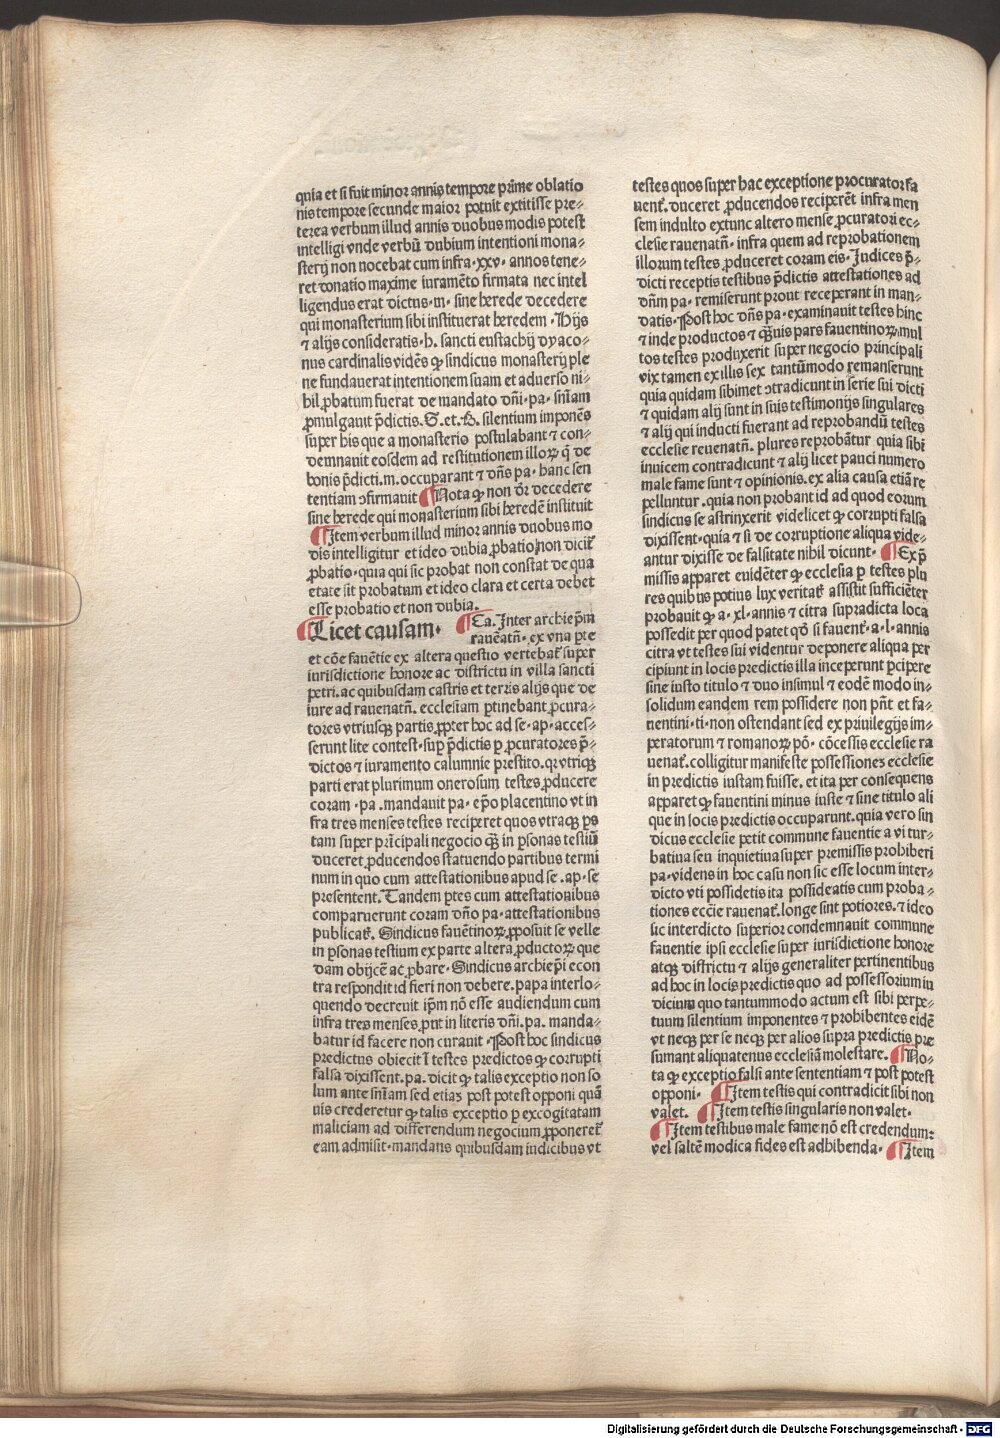 quia et si fuit minor annis tempore prime oblatio
nis tempore secunde maior potuit extitisse pre⸗
terea verbum illud annis duobus modis potest
intelligi vnde verbū dubium intentioni mona⸗
sterij non nocebat cum infra·xxv·annos tene⸗
ret donatio maxime iuramēto firmata nec intel
ligendus erat dictus·m·sine herede decedere
qui monasterium sibi instituerat heredem·Hijs
⁊ alijs consideratis·h. sancti eustachij dyaco⸗
nus cardinalis vidēs ꝙ sindicus monasterij ple
ne fundauerat intentionem suam et aduerso ni⸗
hil ꝓbatum fuerat de mandato dn̄i·pa·sn̄iam
ꝓmulgauit p̄dictis. S. et. B. silentium imponēs
super his que a monasterio postulabant ⁊ con⸗
demnauit eosdem ad restitutionem illoꝝ q̄ de
bonis p̄dicti.m.occuparant ⁊ dn̄s pa·hanc sen
tentiam ↄfirmauit ¶Nota ꝙ non dr̄ decedere
sine herede qui monasterium sibi heredē instituit
¶Item verbum illud minor annis duobus mo
dis intelligitur et ideo dubia ꝓbatio non dicit̄
ꝓbatio·quia qui sic probat non constat de qua
etate sit probatum et ideo clara et certa debet
esse probatio et non dubia.
¶Licet causam· ¶Ea. Inter archiep̄m
rauēatn̄·ex vna pte
et cōe fauētie ex altera questio vertebat̄ super
iurisdictione honore ac districtu in villa sancti
petri.ac quibusdam castris et terris alijs que de
iure ad rauenatn̄.ecclesiam ꝑtinebant ꝓcura⸗
tores vtriusqꝫ partis ꝓpter hoc ad se·ap·acces⸗
serunt lite contest·suꝑ p̄dictis ꝑ ꝓcuratores p̄⸗
dictos ⁊ iuramento calumnie prestito.qr vtriqꝫ
parti erat plurimum onerosum testes ꝓducere
coram·pa.mandauit pa·ep̄o placentino vt in
fra tres menses testes reciperet quos vtraqꝫ ps
tam super prīcipali negocio qꝫ̄ in ꝑsonas testiū
duceret ꝓducendos statuendo partibus termi
num in quo cum attestationibus apud se.ap·se
presentent. Tandem ptes cum attestationibus
comparuerunt coram dn̄o pa·attestationibus
publicat̄. Sindicus fauētinoꝝ ꝓposuit se velle
in ꝑsonas testium ex parte altera ꝓductoꝝ que
dam obijcē ac ꝓbare·Sindicus archiep̄i econ
tra respondit id fieri non debere.papa interlo⸗
quendo decreuit ip̄m nō esse audiendum cum
infra tres menses ꝓut in literis dn̄i.pa.manda⸗
batur id facere non curauit·Post hoc sindicus
predictus obiecit ī testes predictos ꝙ corrupti
falsa dixissent.pa.dicit ꝙ talis exceptio non so
lum ante sn̄iam sed etiaꝫ post potest opponi quā
uis crederetur ꝙ talis exceptio ꝑ excogitatam
maliciam ad differendum negocium ꝓponeret̄
eam admisit·mandans quibusdam iudicibus vt
testes quos super hac exceptione procurator fa
uent̄.duceret ꝓducendos reciperēt infra men
sem indulto extunc altero mense ꝓcuratori ec⸗
clesie rauenatn̄·infra quem ad reprobationem
illorum testes ꝓduceret coram eis·Iudices p̄⸗
dicti receptis testibus p̄dictis attestationes ad
dn̄m pa·remiserunt prout receperant in man⸗
datis·Post hoc dn̄s pa·examinauit testes hinc
⁊ inde productos ⁊ qꝫ̄uis pars fauentinoꝝ mul
tos testes produxerit super negocio principali
vix tamen ex illis sex tantūmodo remanserunt
quia quidam sibimet ↄtradicunt in serie sui dicti
⁊ quidam alij sunt in suis testimonijs singulares
⁊ alij qui inducti fuerant ad reprobandū testes
ecclesie reuenatn̄. plures reprobātur quia sibi
inuicem contradicunt ⁊ alij licet pauci numero
male fame sunt ⁊ opinionis.ex alia causa etiā re
pelluntur.quia non probant id ad quod eorum
sindicus se astrinxerit videlicet ꝙ corrupti falsa
dixissent·quia ⁊ si de corruptione aliqua vide⸗
antur dixisse de falsitate nihil dicunt· ¶Ex p̄
missis apparet euidēter ꝙ ecclesia ꝑ testes plu
res quibus potius lux veritat̄ assistit sufficiēter
probauit ꝙ a·xl·annis ⁊ citra supradicta loca
possedit per quod patet qō si fauent̄·a·l·annis
citra vt testes sui videntur deponere aliqua per
cipiunt in locis predictis illa inceperunt ꝑcipere
sine iusto titulo ⁊ duo insimul ⁊ eodē modo in⸗
solidum eandem rem possidere non pn̄t et fa⸗
nentini·ti·non ostendant sed ex priuilegijs im⸗
peratorum ⁊ romanoꝝ pō·cōcessis ecclesie ra
uenat̄.colligitur manifeste possessiones ecclesie
in predictis iustam fuisse.et ita per consequens
apparet ꝙ fauentini minus iuste ⁊ sine titulo ali
que in locis predictis occuparunt.quia vero sin
dicus ecclesie petit commune fauentie a vi tur⸗
batiua seu inquietiua super premissis prohiberi
pa·videns in hoc casu non sic esse locum inter⸗
dicto vti possidetis ita possideatis cum proba⸗
tiones eccīe rauenat̄.longe sint potiores.⁊ ideo
sic interdicto superior condemnauit commune
fauentie ipsi ecclesie super iurisdictione honore
atqꝫ districtu ⁊ alijs generaliter pertinentibus
ad hoc in locis predictis quo ad possessorium iu
dicium quo tantummodo actum est sibi perpe⸗
tuum silentium imponentes ⁊ prohibentes eidē
vt neqꝫ per se neqꝫ per alios supra predictis pre
sumant aliquatenus ecclesiā molestare. ¶No⸗
ta ꝙ exceptio falsi ante sententiam ⁊ post potest
opponi· ¶Item testis qui contradicit sibi non
valet. ¶Item testis singularis non valet·
¶Item testibus male fame nō est credendum:
vel saltē modica fides est adhibenda· ¶Item
Digitalisierung gefördert durch die Deutsche Forschungsgemeinschaft - DFG